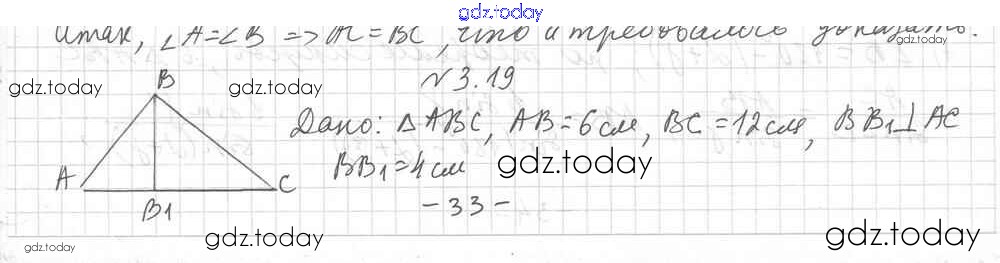 gdz.today
Итак, ∠A=∠B => AC=BC, что и требовалось доказать.
N 3.19
gdz.today
gdz.today
B
Дано: △ABC, AB=6см, BC=12см, BB₁⊥AC
A
C
BB₁=4см
gdz.today
B1
-33-
gdz.today
gdz.today
gdz.today